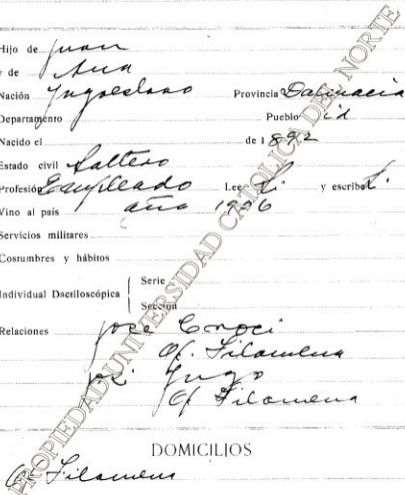 Hijo de Juan
y de Ana
Nación Yugoeslavo Provincia Dalmacia
Departamento Pueblo id
Nacido el de 1892
Estado civil Soltero
Profesión Empleado Lee Si y escribe Si
Vino al país año 1906
Servicios militares
Costumbres y hábitos
Individual Dactiloscópica Serie
Sección
Relaciones José
Of. Filomena
Yugo
Of Filomena
DOMICILIOS
Of. Filomena
PROPIEDAD UNIVERSIDAD CATOLICA DEL NORTE